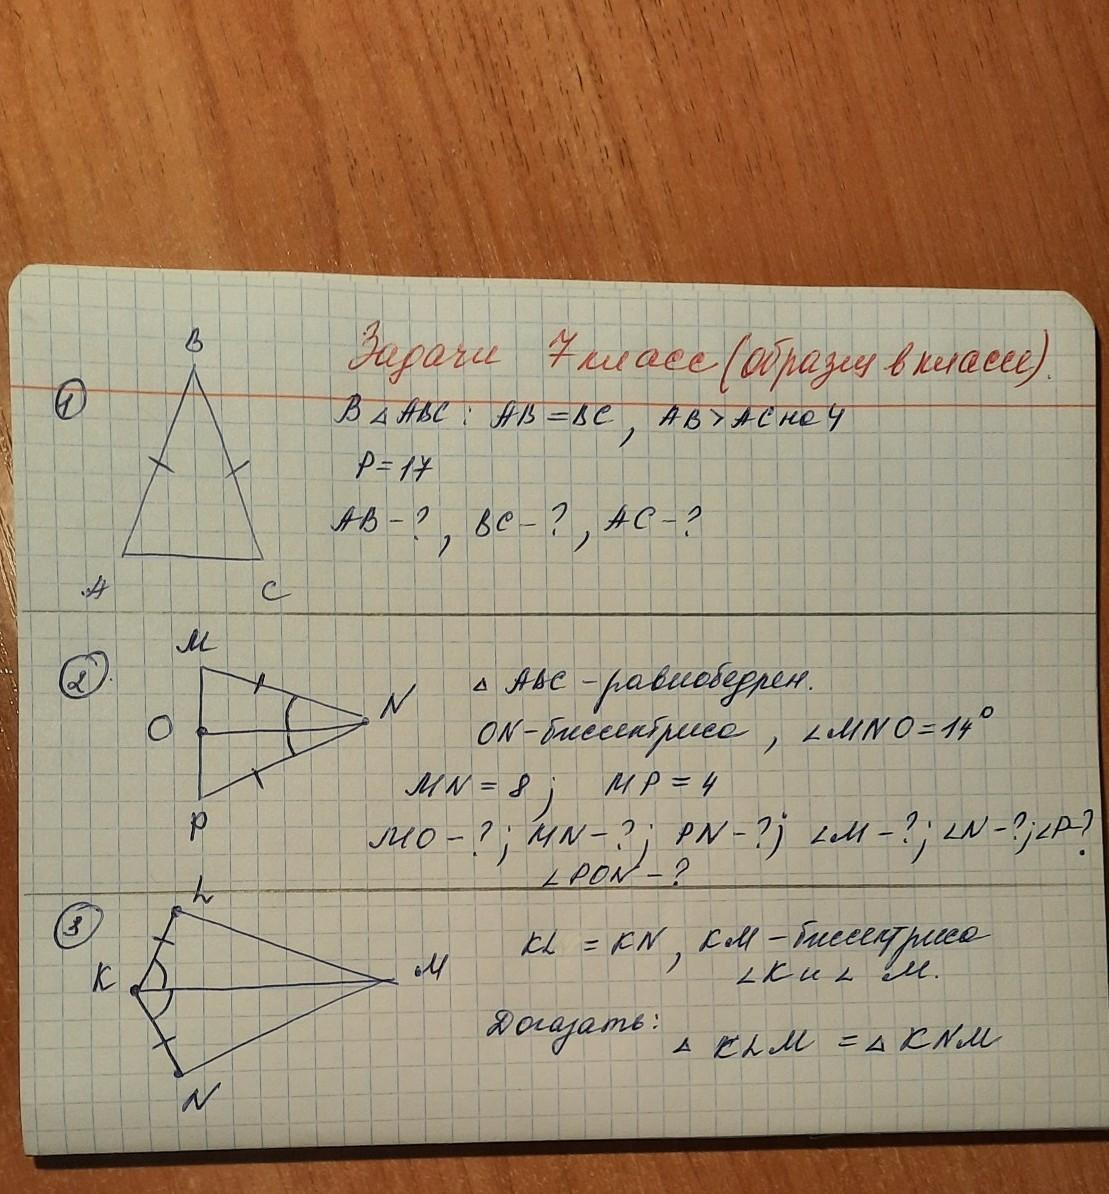 Задачи 7 класс (образец в классе).
1
B
A
C
В △ ABC : AB = BC, AB > AC на 4
P = 17
AB - ?, BC - ?, AC - ?
2
M
O
N
P
△ ABC - равнобедрен.
ON - биссектриса, ∠MNO = 14°
MN = 8; MP = 4
MO - ?; MN - ?; PN - ?; ∠M - ?; ∠N - ?; ∠P - ?
∠PON - ?
3
L
K
M
N
KL = KN, KM - биссектриса
∠K и ∠ M.
Доказать:
△ KLM = △ KNM